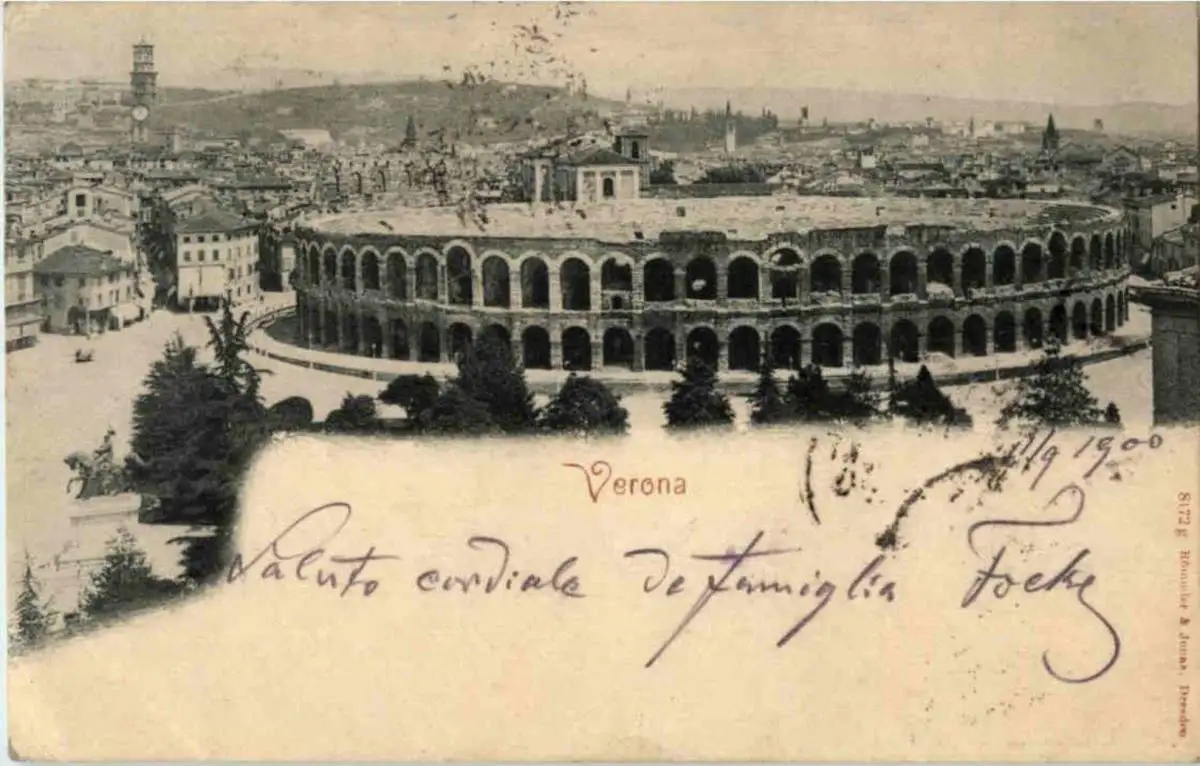 11/9 1900
Verona
Saluto cordiale de famiglia Focke
8172 g Römmler & Jonas, Dresden